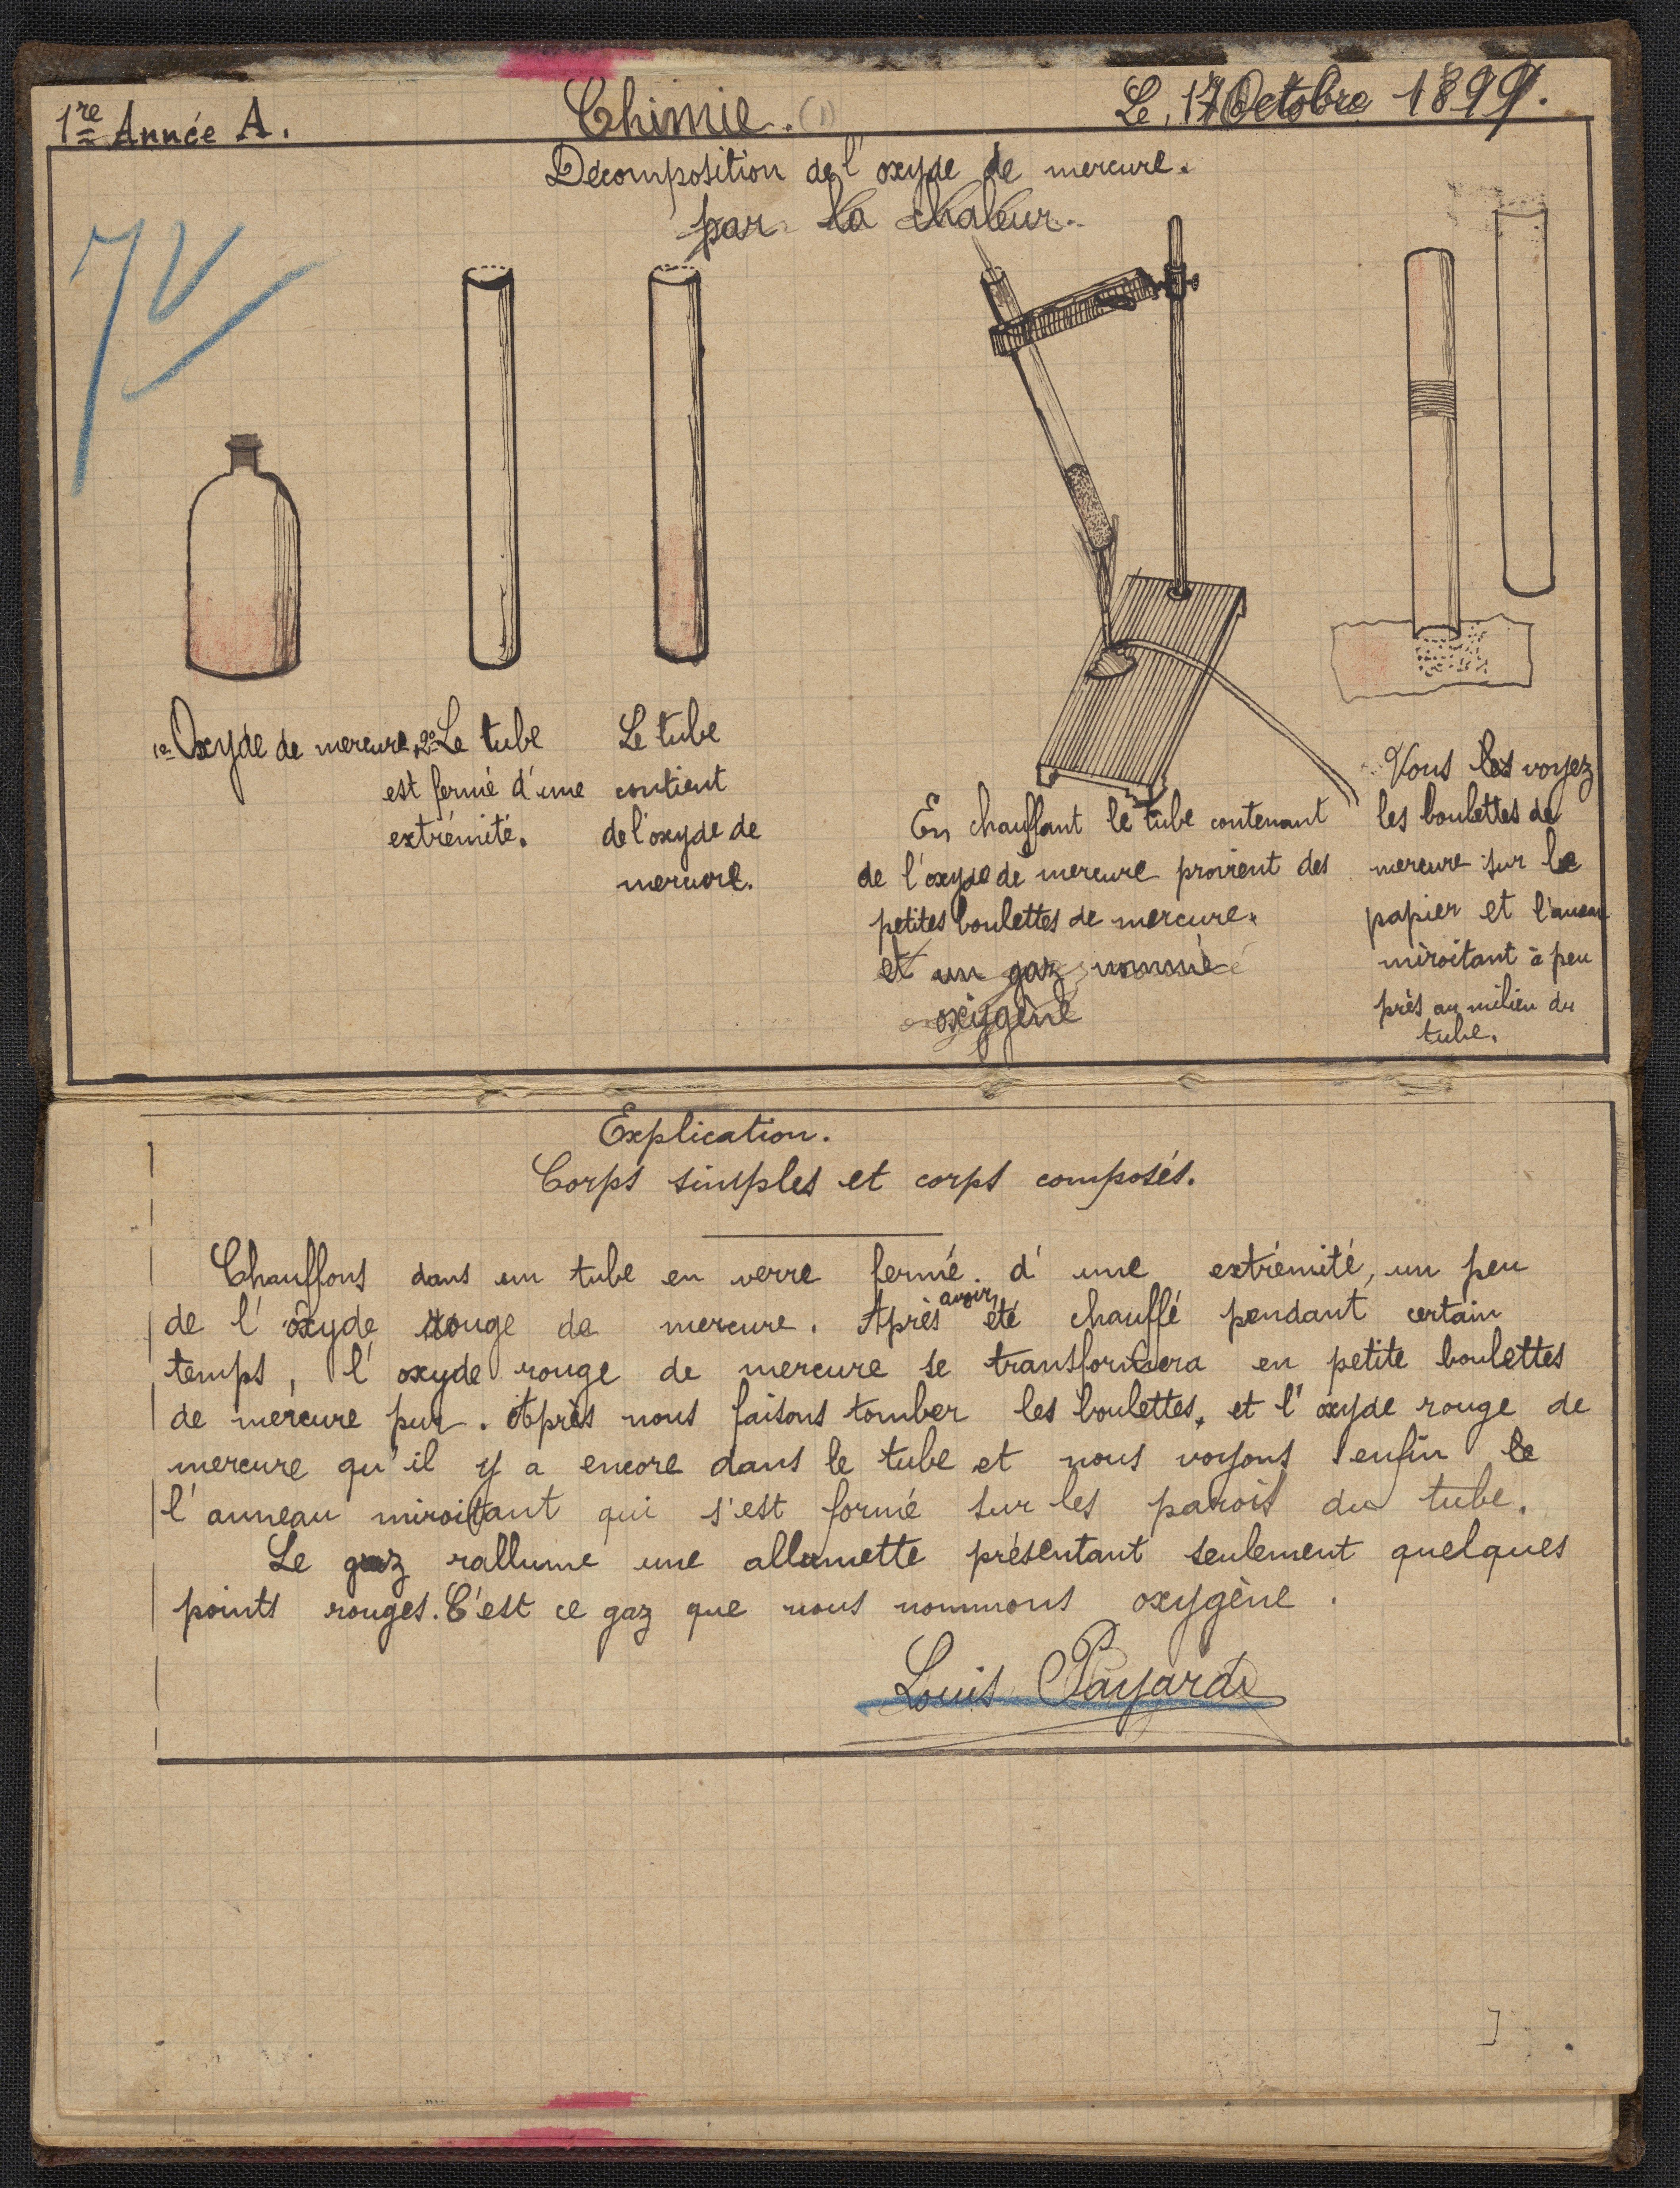 1re Année A.
Chimie. (1)
Le, 17 Octobre 1899.
Décomposition de l'oxyde de mercure.
par la chaleur.
1º Oxyde de mercure.
2º Le tube
est fermé d'une
extrémité.
Le tube
contient
de l'oxyde de
mercure.
En chauffant le tube contenant
de l'oxyde de mercure provient des
petites boulettes de mercure.
et un gaz nommé
oxigène
Vous les voyez
les boulettes de
mercure sur le
papier et l'aneau
miroitant à peu
près au milieu du
tube.
Explication.
Corps simples et corps composés.
Chauffons dans un tube en verre fermé. d'une extrémité, un peu
de l'oxyde rouge de mercure. Après avoir été chauffé pendant certain
temps, l'oxyde rouge de mercure se transformera en petite boulettes
de mercure pur. Après nous faisons tomber les boulettes, et l'oxyde rouge de
mercure qu'il y a encore dans le tube et nous voyons enfin le
l'anneau miroitant qui s'est formé sur les parois du tube.
Le gaz rallume une allumette présentant seulement quelques
points rouges. C'est ce gaz que nous nommons oxygène.
Louis Payard